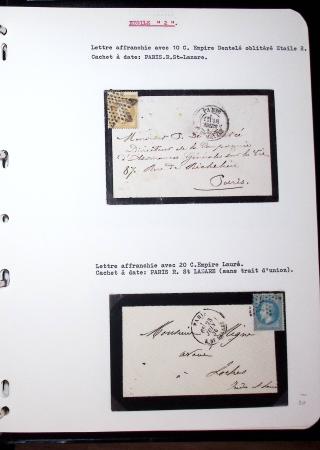 ETOILE "2".
Lettre affranchie avec 10 C. Empire Dentelé oblitéré Etoile 2.
Cachet à date: PARIS.R.St-Lazare.
PARIS
Monsieur J. De
Directeur de la Compagnie
d'Assurances générales sur la Vie
87, Rue de Richelieu
Paris.
Lettre affranchie avec 20 C.Empire Lauré.
Cachet à date: PARIS R. St LAZARE (sans trait d'union).
PARIS
Monsieur
avoué
à Loches